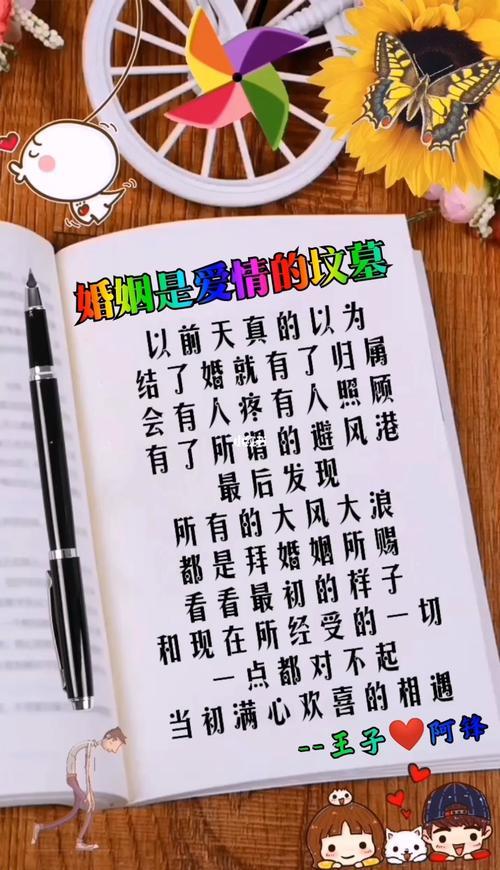 婚姻是爱情的坟墓
以前天真的以为
结了婚就有了归属
会有人疼有人照顾
有了所谓的避风港
最后发现
所有的大风大浪
都是拜婚姻所赐
看看最初的样子
和现在所经受的一切
一点都对不起
当初满心欢喜的相遇
--王子❤阿锋